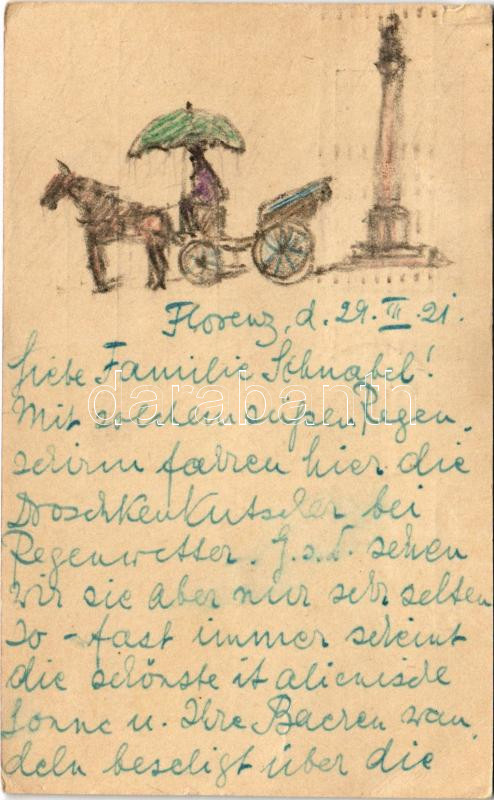 Florenz, d. 29. III. 21.
Liebe Familie Schnabel!
Mit solchem süßen Regen-
schirm fahren hier die
Droschkenkutscher bei
Regenwetter. G. s. D. sehen
wir sie aber nur sehr selten
so - fast immer scheint
die schönste italienische
Sonne u. Ihre Baeren wan-
deln beseligt über die
darabanth